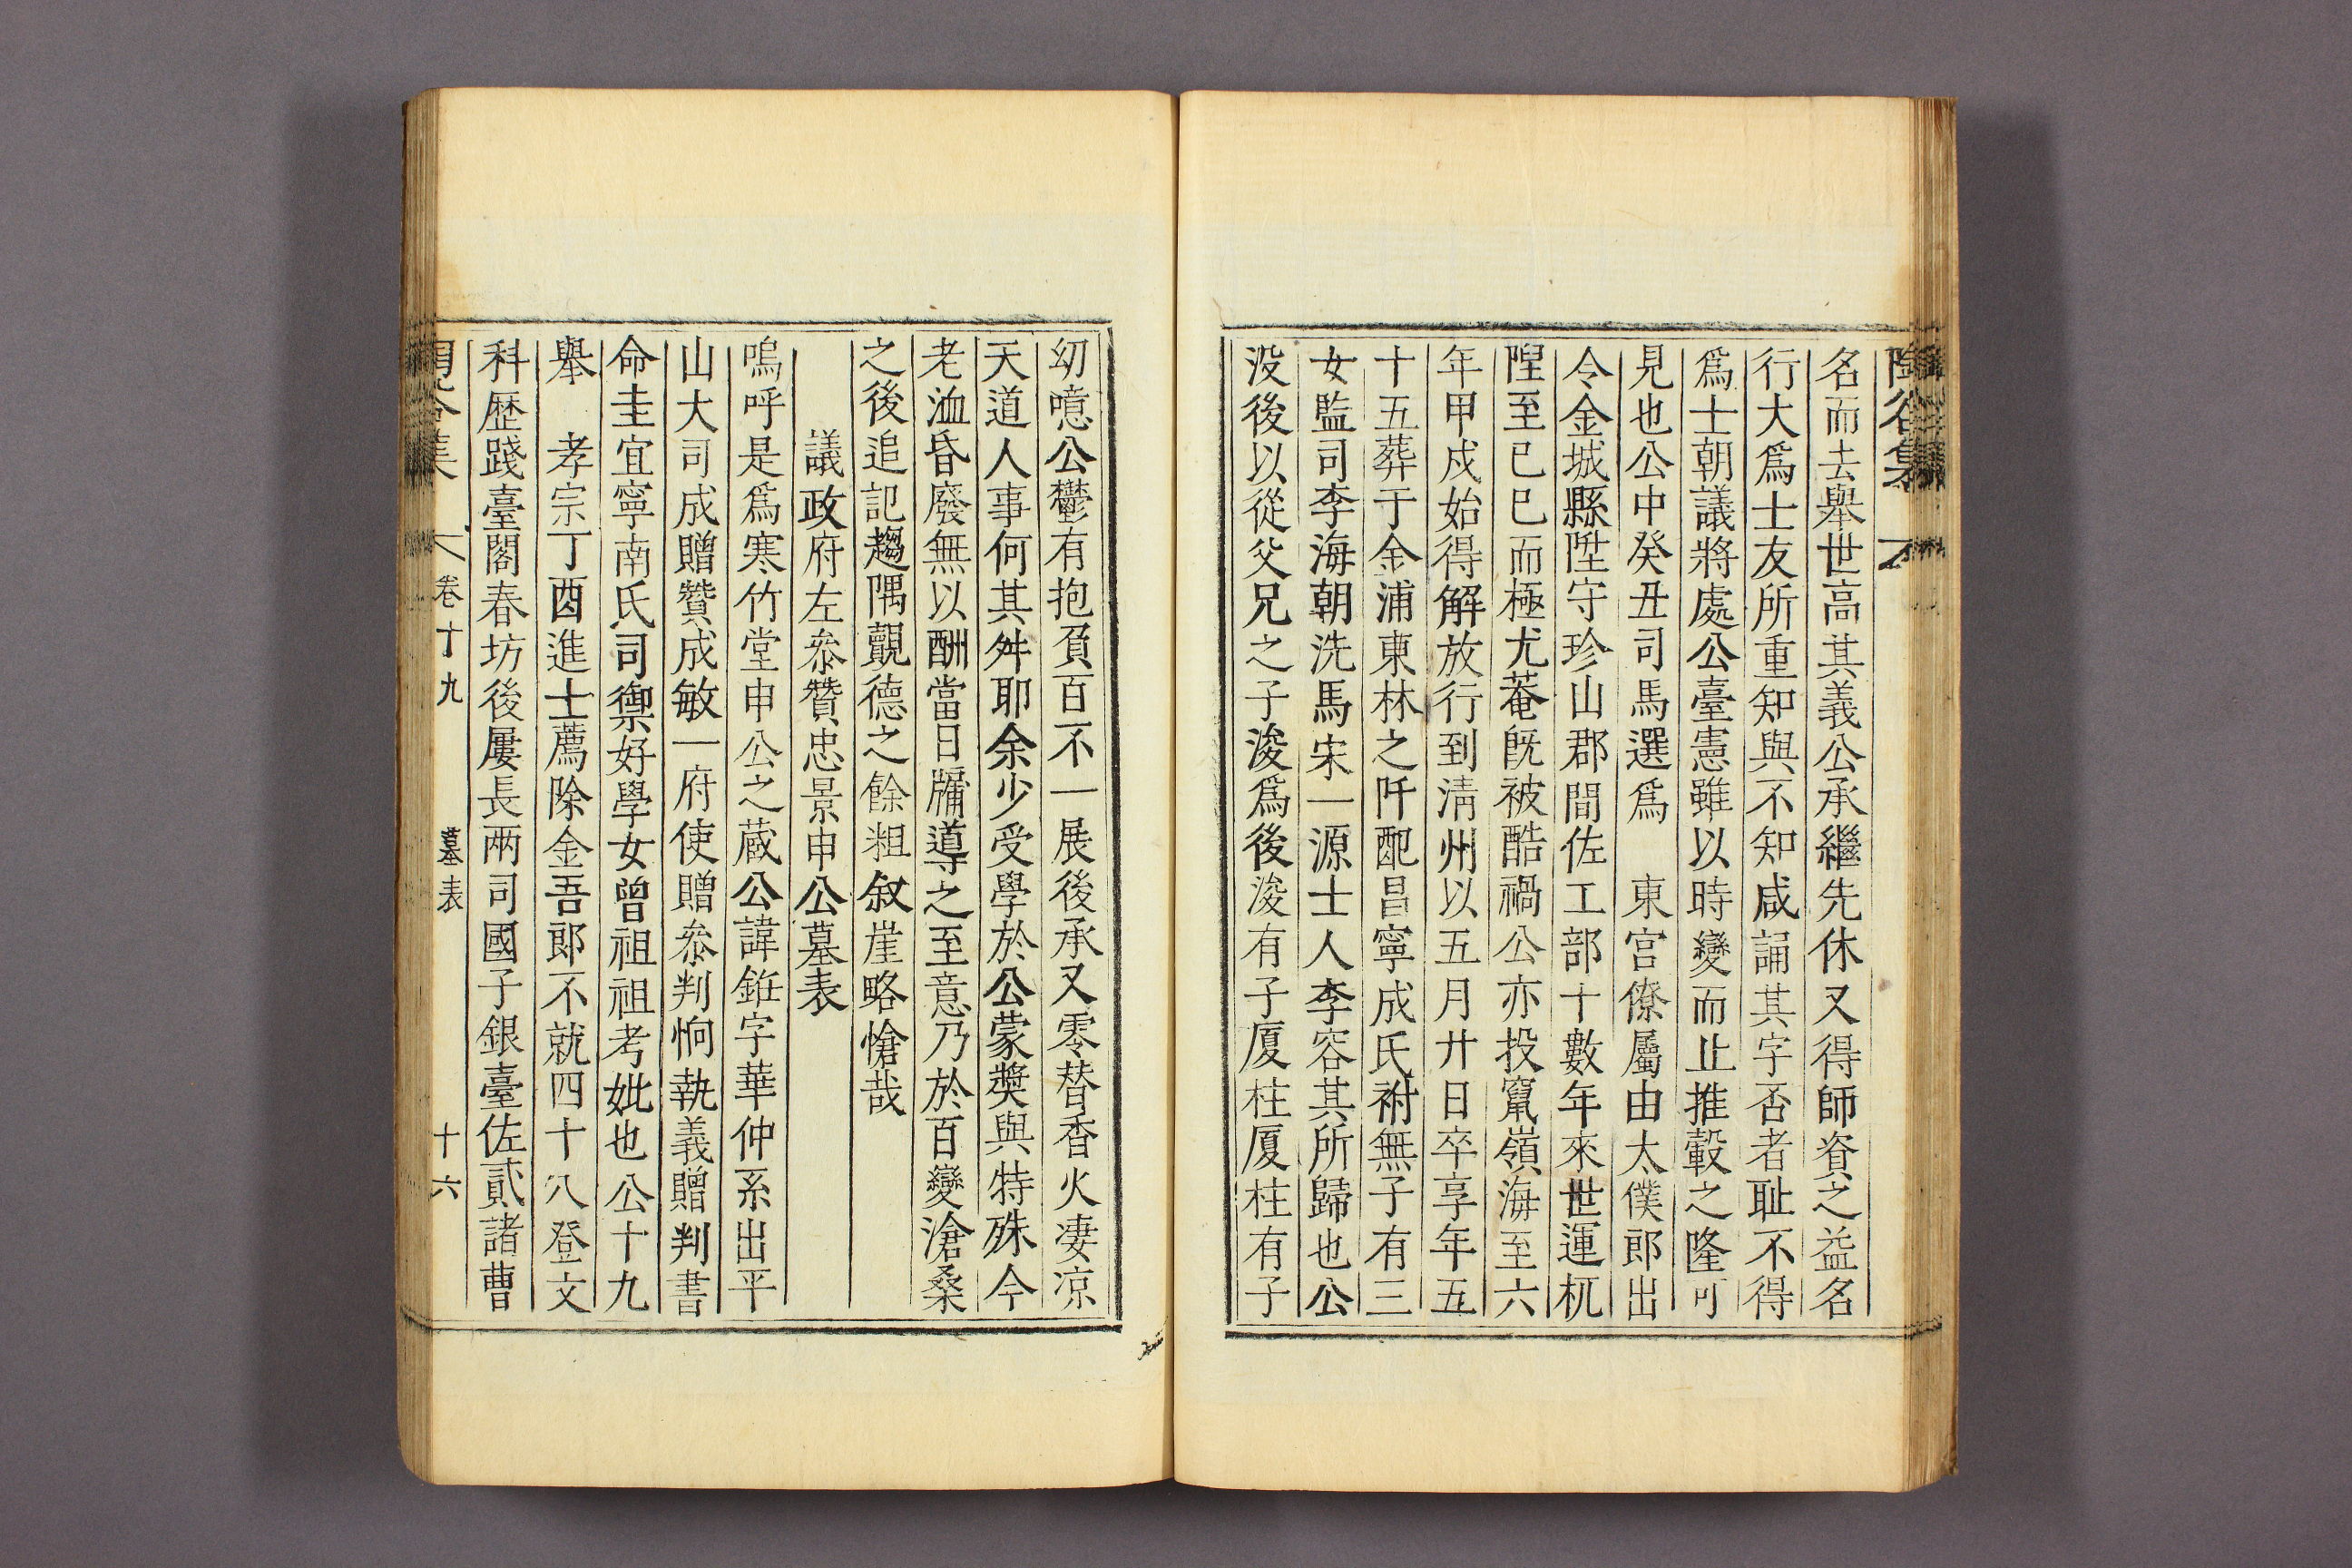 谷集
名而去舉世高其義公承繼先休又得師資之益名
行大爲士友所重知與不知咸誦其字否者耻不得
爲士朝議將處公臺憲雖以時變而止推轂之隆可
見也公中癸丑司馬選爲 東宮僚屬由太僕郎出
令金城縣陞守珍山郡間佐工部十數年來世運杌
隉至己巳而極尤菴旣被酷禍公亦投竄嶺海至六
年甲戌始得解放行到淸州以五月廿日卒享年五
十五葬于金浦東林之阡配昌寧成氏祔無子有三
女監司李海朝洗馬宋一源士人李容其所歸也公
沒後以從父兄之子浚爲後浚有子厦柱厦柱有子
幼噫公鬱有抱負百不一展後承又零替香火凄凉
天道人事何其舛耶余少受學於公蒙奬與特殊今
老洫昏廢無以酬當日牖導之至意乃於百變滄桑
之後追記趨隅覿德之餘粗叙崖略愴哉
議政府左叅贊忠景申公墓表
嗚呼是爲寒竹堂申公之藏公諱銋字華仲系出平
山大司成贈贊成敏一府使贈叅判恦執義贈判書
命圭宜寧南氏司禦好學女曾祖祖考妣也公十九
擧 孝宗丁酉進士薦除金吾郞不就四十八登文
科歷踐臺閣春坊後屢長兩司國子銀臺佐貳諸曹
谷集 卷十九 墓表 十六